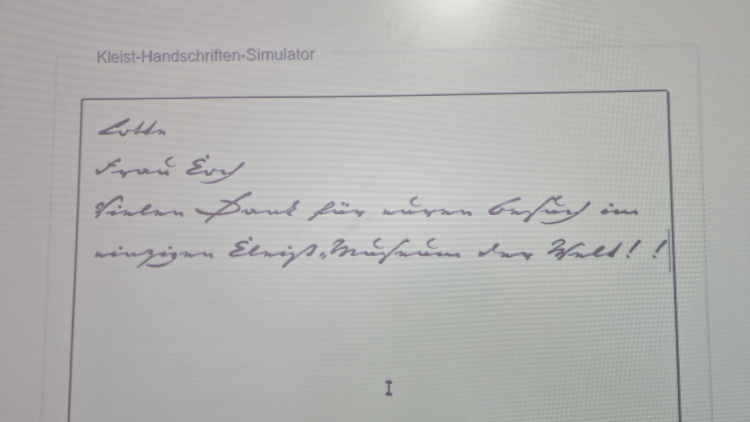 Kleist-Handschriften-Simulator
Lotte
Frau Koch
Vielen Dank für euren Besuch im
einzigen Kleist-Museum der Welt! !